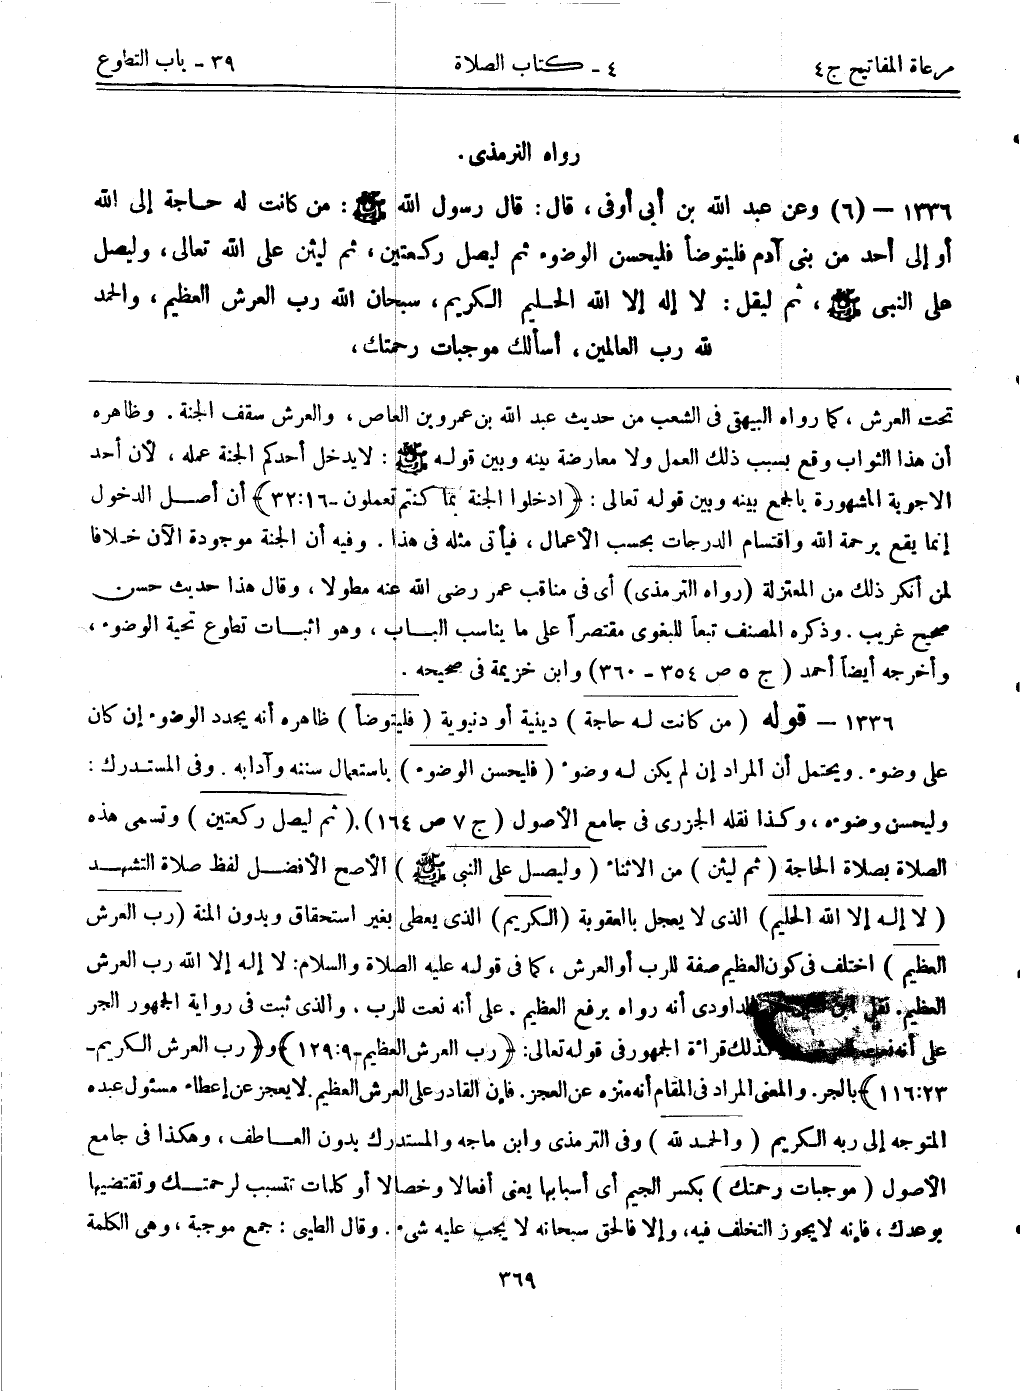 مرعاة المفاتيح ج ٤ ٤ - كتاب الصلاة ٣٩ - باب التطوع
رواه الترمذى.
١٣٣٦ – (٦) وعن عبد الله بن أبي أوفى، قال: قال رسول الله ﷺ: من كانت له حاجة إلى الله
أو إلى أحد من بنى آدم فليتوضأ فليحسن الوضوء ثم ليصل ركعتين، ثم ليثن على الله تعالى، وليصل
على النبى ﷺ، ثم ليقل: لا إله إلا الله الحليم الكريم، سبحان الله رب العرش العظيم، والحمد
لله رب العالمين، أسألك موجبات رحمتك،
تحت العرش، كما رواه البيهقى فى الشعب من حديث عبد الله بن عمرو بن العاص، والعرش سقف الجنة. وظاهره
أن هذا الثواب وقع بسبب ذلك العمل ولا معارضة بينه وبين قوله ﷺ: لا يدخل أحدكم الجنة عمله، لأن أحد
الاجوبة المشهورة بالجمع بينه وبين قوله تعالى: ﴿ادخلوا الجنة بما كنتم تعملون -٣٢:١٦﴾ أن أصل الدخول
إنما يقع برحمة الله واقتسام الدرجات بحسب الأعمال، فيأتى مثله فى هذا. وفيه أن الجنة موجودة الآن خلافا
لمن أنكر ذلك من المعتزلة (رواه الترمذى) أى فى مناقب عمر رضى الله عنه مطولا، وقال هذا حديث حسن
صحيح غريب. وذكره المصنف تبعاً للبغوى مقتصراً على ما يناسب الباب، وهو اثبات تطوع تحية الوضوء،
وأخرجه أيضاً أحمد (ج ٥ ص ٣٥٤ - ٣٦٠) وابن خزيمة فى صحيحه.
١٣٣٦ – قوله (من كانت له حاجة) دينية أو دنيوية (فليتوضأ) ظاهره أنه يجدد الوضوء إن كان
على وضوء. ويحتمل أن المراد إن لم يكن له وضوء (فليحسن الوضوء) باستعمال سننه وآدابه. وفى المستدرك:
وليحسن وضوءه، وكذا نقله الجزرى فى جامع الأصول (ج ٧ ص ١٦٤). (ثم ليصل ركعتين) وتسمى هذه
الصلاة بصلاة الحاجة (ثم ليثن) من الاثناء (وليصل على النبى ﷺ) الأصح الأفضل لفظ صلاة التشهد
(لا إله إلا الله الحليم) الذى لا يعجل بالعقوبة (الكريم) الذى يعطى بغير استحقاق وبدون المنة (رب العرش
العظيم) اختلف فى كون العظيم صفة للرب أو العرش، كما فى قوله عليه الصلاة والسلام: لا إله إلا الله رب العرش
العظيم. نقل ابن الداودى أنه رواه برفع العظيم. على أنه نعت للرب. والذى ثبت فى رواية الجمهور الجر
على أنه نعت كذلك قراءة الجمهور فى قوله تعالى: ﴿رب العرش العظيم -١٢٩:٩﴾ و﴿رب العرش الكريم-
١١٦:٢٣﴾ بالجر. والمعنى المراد فى المقام أنه منزه عن العجز. فإن القادر على العرش العظيم. لا يعجز عن إعطاء مسئول عبده
المتوجه إلى ربه الكريم (والحمد لله) وفى الترمذى وابن ماجه والمستدرك بدون العاطف، وهكذا فى جامع
الأصول (موجبات رحمتك) بكسر الجيم أى أسبابها يعنى أفعالا وخصالا أو كلمات تتسبب لرحمتك وتقتضيها
بوعدك، فإنه لا يجوز التخلف فيه، وإلا فالحق سبحانه لا يجب عليه شىء. وقال الطيبى: جمع موجبة، وهى الكلمة
٣٦٩